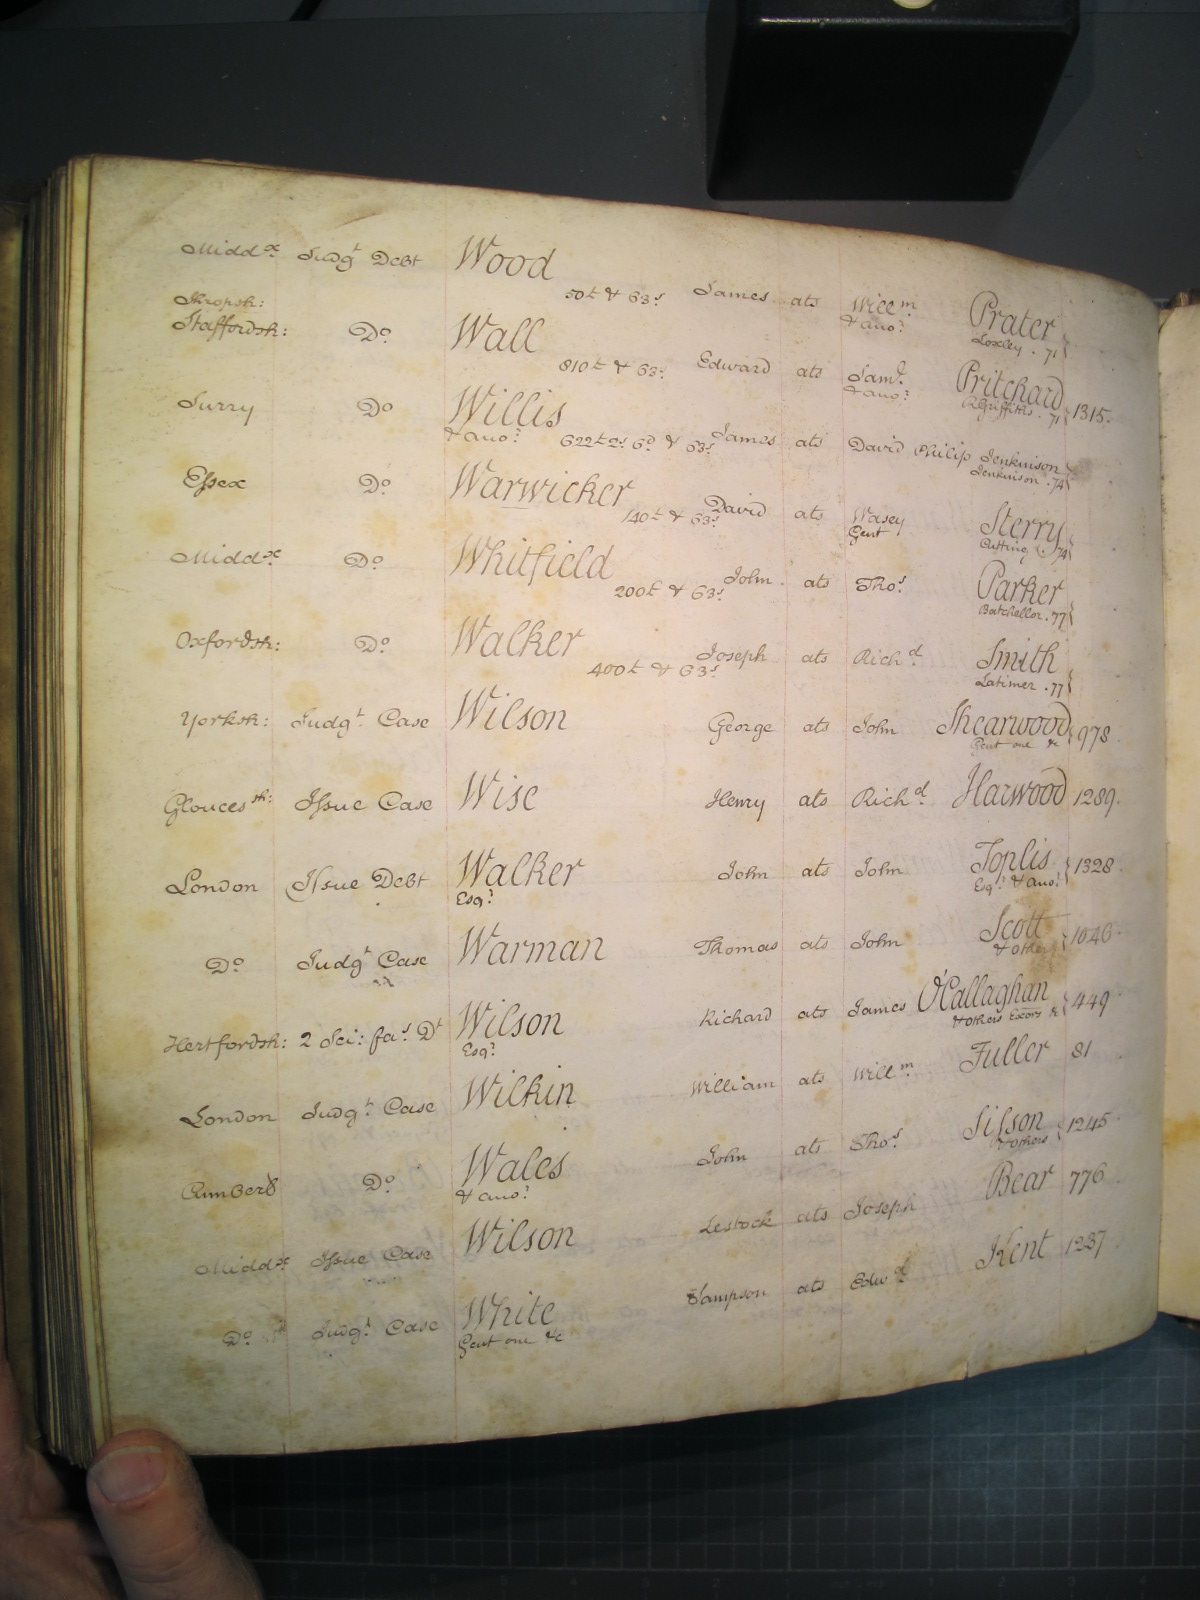 Midd:x Judgt Debt Wood 50£ & 63s James ats Willm & ano: Prater Loxley . 71
Shropsh: Staffordsh: Do Wall 810£ & 63s Edward ats Saml. & ano: Pritchard RGriffiths . 71 1315.
Surry Do Willis & ano: 622£ 6d & 63s James ats David Philip Jenkinson Jenkinson . 74
Essex Do Warwicker 140£ & 63s David ats Wasey Gent Sterry Cutting . 74
Midd:x Do Whitfield 200£ & 63s John ats Thos: Parker Batchellor . 77
Oxfordsh: Do Walker 400£ & 63s Joseph ats Richd. Smith Latimer . 77
Yorksh: Judgt Case Wilson George ats John Shearwood Gent one &c 978
Gloucessh: Issue Case Wise Henry ats Richd. Harwood 1289.
London Issue Debt Walker Esqr: John ats John Toplis Esqr: & ano: 1328
Do Judgt Case Warman Thomas ats John Scott & others 1046
Hertfordsh: 2 Sci: fas Dt Wilson Esqr: Richard ats James O'Callaghan & others Excors &c 449
London Judgt Case Wilkin William ats Willm Fuller 81
Cumberd Do Wales & ano: John ats Thos: Sisson & others 1245
Midd:x Issue Case Wilson Lestock ats Joseph Bear 776
Do Judgt Case White Gent one &c Sampson ats Edwd Kent 1237